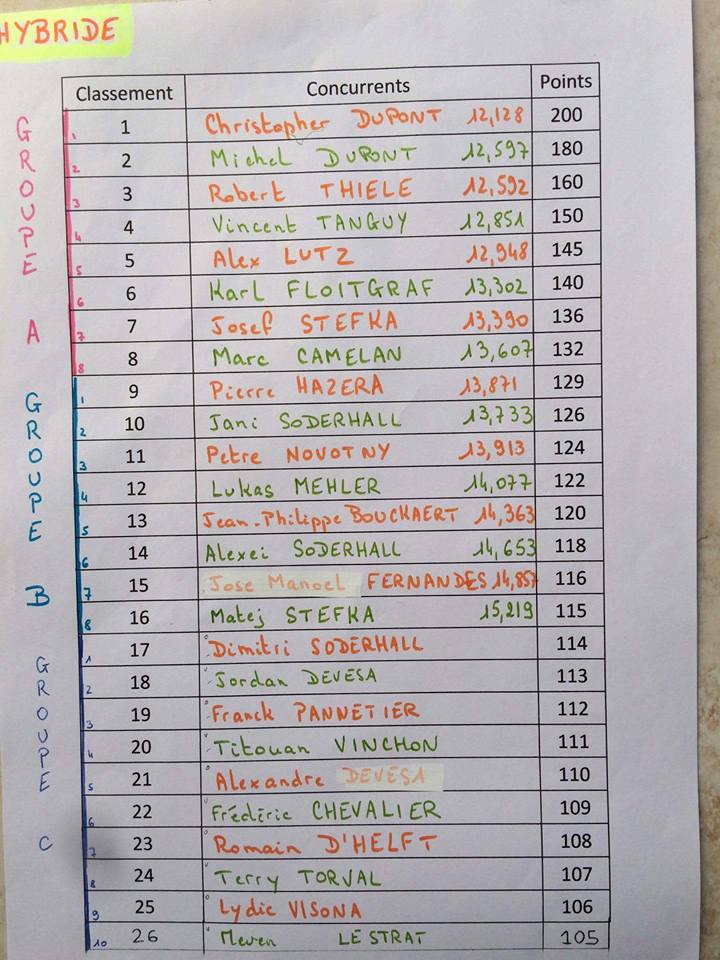 HYBRIDE
Classement Concurrents Points
GROUPE A
1 1 Christopher DUPONT 12,128 200
2 2 Michel DUPONT 12,597 180
3 3 Robert THIELE 12,592 160
4 4 Vincent TANGUY 12,851 150
5 5 Alex LUTZ 12,948 145
6 6 Karl FLOITGRAF 13,302 140
7 7 Josef STEFKA 13,390 136
8 8 Marc CAMELAN 13,607 132
GROUPE B
1 9 Pierre HAZERA 13,871 129
2 10 Jani SODERHALL 13,733 126
3 11 Petre NOVOTNY 13,913 124
4 12 Lukas MEHLER 14,077 122
5 13 Jean-Philippe BOUCKAERT 14,363 120
6 14 Alexei SODERHALL 14,653 118
7 15 Jose Manoel FERNANDES 14,857 116
8 16 Matej STEFKA 15,219 115
GROUPE C
1 17 Dimitri SODERHALL 114
2 18 Jordan DEVESA 113
3 19 Franck PANNETIER 112
4 20 Titouan VINCHON 111
5 21 Alexandre DEVESA 110
6 22 Frédéric CHEVALIER 109
7 23 Romain D'HELFT 108
8 24 Terry TORVAL 107
9 25 Lydie VISONA 106
10 26 Meven LE STRAT 105